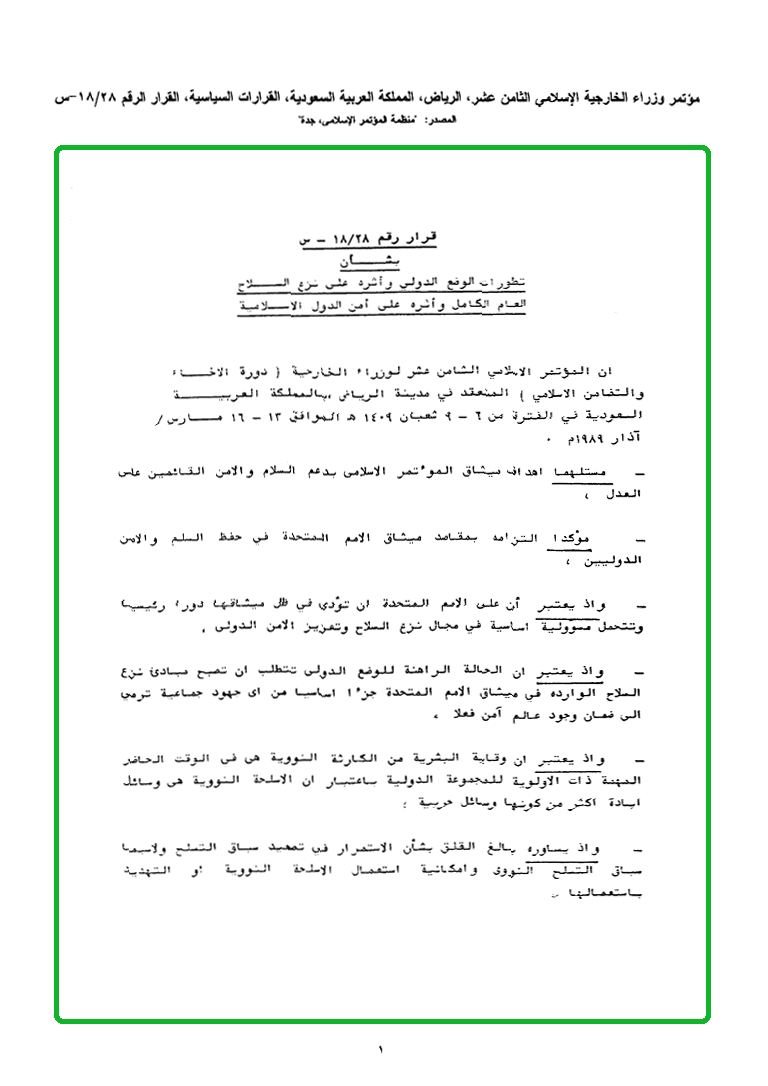 مؤتمر وزراء الخارجية الإسلامي الثامن عشر، الرياض، المملكة العربية السعودية، القرارات السياسية، القرار الرقم ١٨/٢٨-س
المصدر: "منظمة المؤتمر الإسلامى، جدة"
قرار رقم ١٨/٢٨ - س
بشـــــأن
تطورات الوضع الدولى وأثره على نزع الســــلاح
العام الكامل وأثره على أمن الدول الاســـلامية
ان المؤتمر الاسلامي الثامن عشر لوزراء الخارجية ( دورة الاخـــــاء
والتضامن الاسلامي ) المنعقد في مدينة الرياض ،بالمملكة العربيـــــــة
السعودية في الفترة من ٦ - ٩ شعبان ١٤٠٩ هـ الموافق ١٣ - ١٦ مـــارس /
آذار ١٩٨٩م ٠
- مستلهما اهداف ميثاق المؤتمر الاسلامى بدعم السلام والامن القائمين على
العدل ،
- مؤكدا التزامه بمقاصد ميثاق الامم المتحدة في حفظ السلم والامن
الدوليين ،
- واذ يعتبر أن على الامم المتحدة ان تؤدى في ظل ميثاقها دورا رئيسيا
وتتحمل مسؤولية اساسية في مجال نزع السلاح وتعزيز الامن الدولى ،
- واذ يعتبر ان الحالة الراهنة للوضع الدولى تتطلب ان تصبح مبادئ نزع
السلاح الوارده في ميثاق الامم المتحدة جزءا اساسيا من اى جهود جماعية ترمي
الى ضمان وجود عالم آمن فعلا ،
- واذ يعتبر ان وقاية البشرية من الكارثة النووية هى فى الوقت الحاضر
المهمة ذات الاولوية للمجموعة الدولية باعتبار ان الاسلحة النووية هى وسائل
ابادة اكثر من كونها وسائل حربية ؛
- واذ يساوره بالغ القلق بشأن الاستمرار في تصعيد سباق التسلح ولاسيما
سباق التسلح النووى وامكانية استعمال الاسلحة النووية او التهديد
باستعمالها ،
١